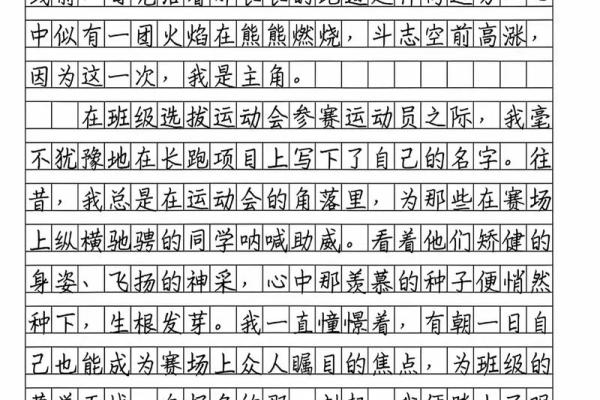 中似有一团火焰在熊熊燃烧，斗志空前高涨，
因为这一次，我是主角。
在班级选拔运动会参赛运动员之际，我毫
不犹豫地在长跑项目上写下了自己的名字。往
昔，我总是在运动会的角落里，为那些在赛场
上纵横驰骋的同学呐喊助威。看着他们矫健的
身姿、飞扬的神采，心中那羡慕的种子便悄然
种下，生根发芽。我一直憧憬着，有朝一日自
己也能成为赛场上众人瞩目的焦点，为班级的